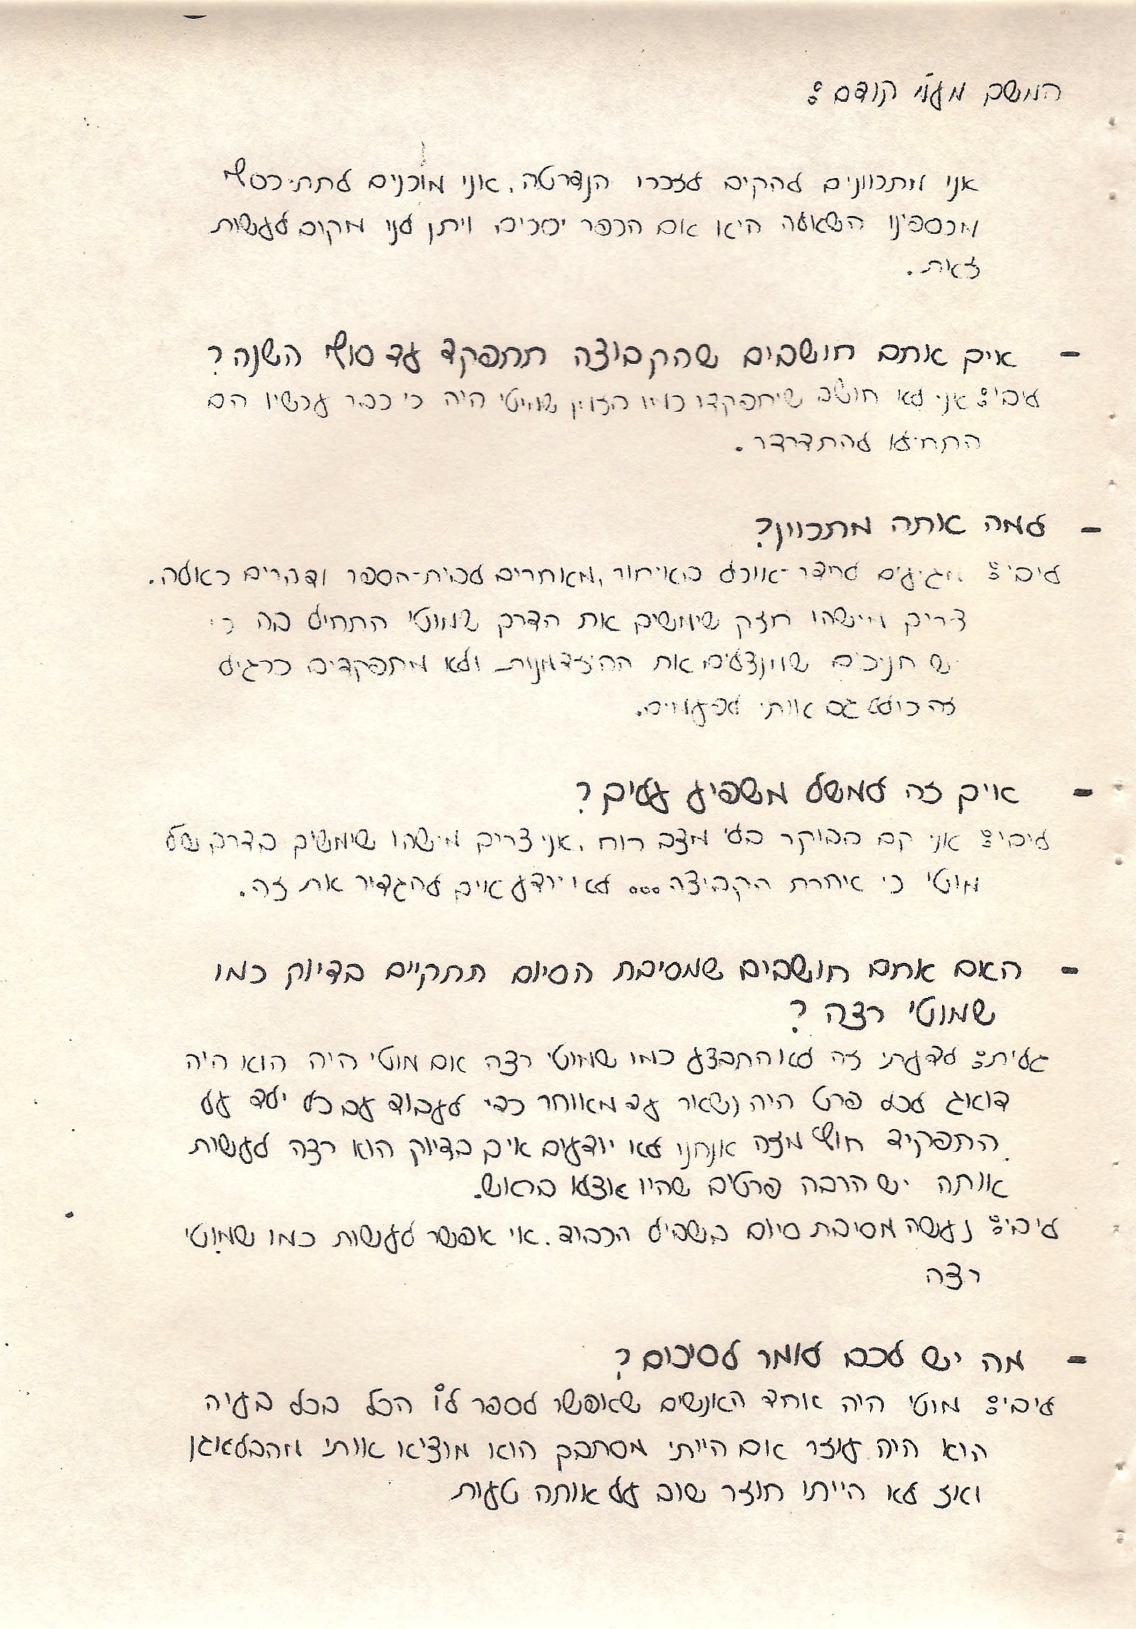 המשך מעמ' קודם:
אני מתכוונים להקים לזכרו הנדרטה, אני מוכנים לתת כסף
מכספינו השאלה היא אם הכפר יסכים ויתן לנו מקום לעשות
זאת.
- איך אתם חושבים שהקבוצה תתפקד עד סוף השנה?
ליבי: אני לא חושב שיתפקדו כמו הזמן שמוטי היה כי כבר עכשיו הם
התחילו להתדרדר.
- למה אתה מתכוון?
ליבי: מגיעים לחדר-אוכל באיחור, מאוחרים לבית-הספר ודברים כאלה.
צריך מישהו חזק שימשיך את הדרך שמוטי התחיל בה כי
יש חניכים שמנצלים את ההזדמנות ולא מתפקדים כרגיל
זה כולל גם אותי לפעמים.
- אויך זה למשל משפיע עליך?
ליבי: אני קם הבוקר בלי מצב רוח, אני צריך מישהו שימשיך בדרך של
מוטי כי אחרת הקבוצה... לא יודע איך להגדיר את זה.
- האם אתם חושבים שמסיבת הסיום תתקיים בדיוק כמו
שמוטי רצה?
גלית: לדעתי זה לא התבצע כמו שמוטי רצה אם מוטי היה הוא היה
דואג לכל פרט היה נשאר עד מאוחר כדי לעבוד עם כל ילד על
התפקיד חוץ מזה אנחנו לא יודעים איך בדיוק הוא רצה לעשות
אותה יש הרבה פרטים שהיו אצלו בראש.
ליבי: נעשה מסיבת סיום בשביל הכבוד. אי אפשר לעשות כמו שמוטי
רצה
- מה יש לכם לומר לסיכום?
ליבי: מוטי היה אחד האנשים שאפשר לספר לו הכל בכל בעיה
הוא היה עוזר אם הייתי מסתבך הוא מוציא אותי מהבלאגן
ואז לא הייתי חוזר שוב על אותה טעות